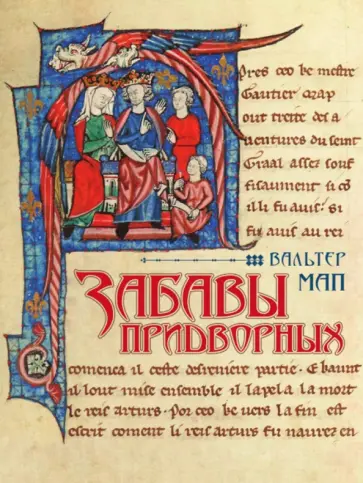 pres ceo be mestre
Gautier map
out treite des a
uentures du seint
Graal assez souf
fisaument si co
il li fu auis: si
fu auis au rei
ВАЛЬТЕР
МАП
ЗАБАВЫ
ПРИДВОРНЫХ
comenca il ceste desreniere partie. E baunt
il lout mise ensemble il lapela la mort
le reis arturs. Por ceo be uers la fin est
escrit coment li reis arturs fu naurez en